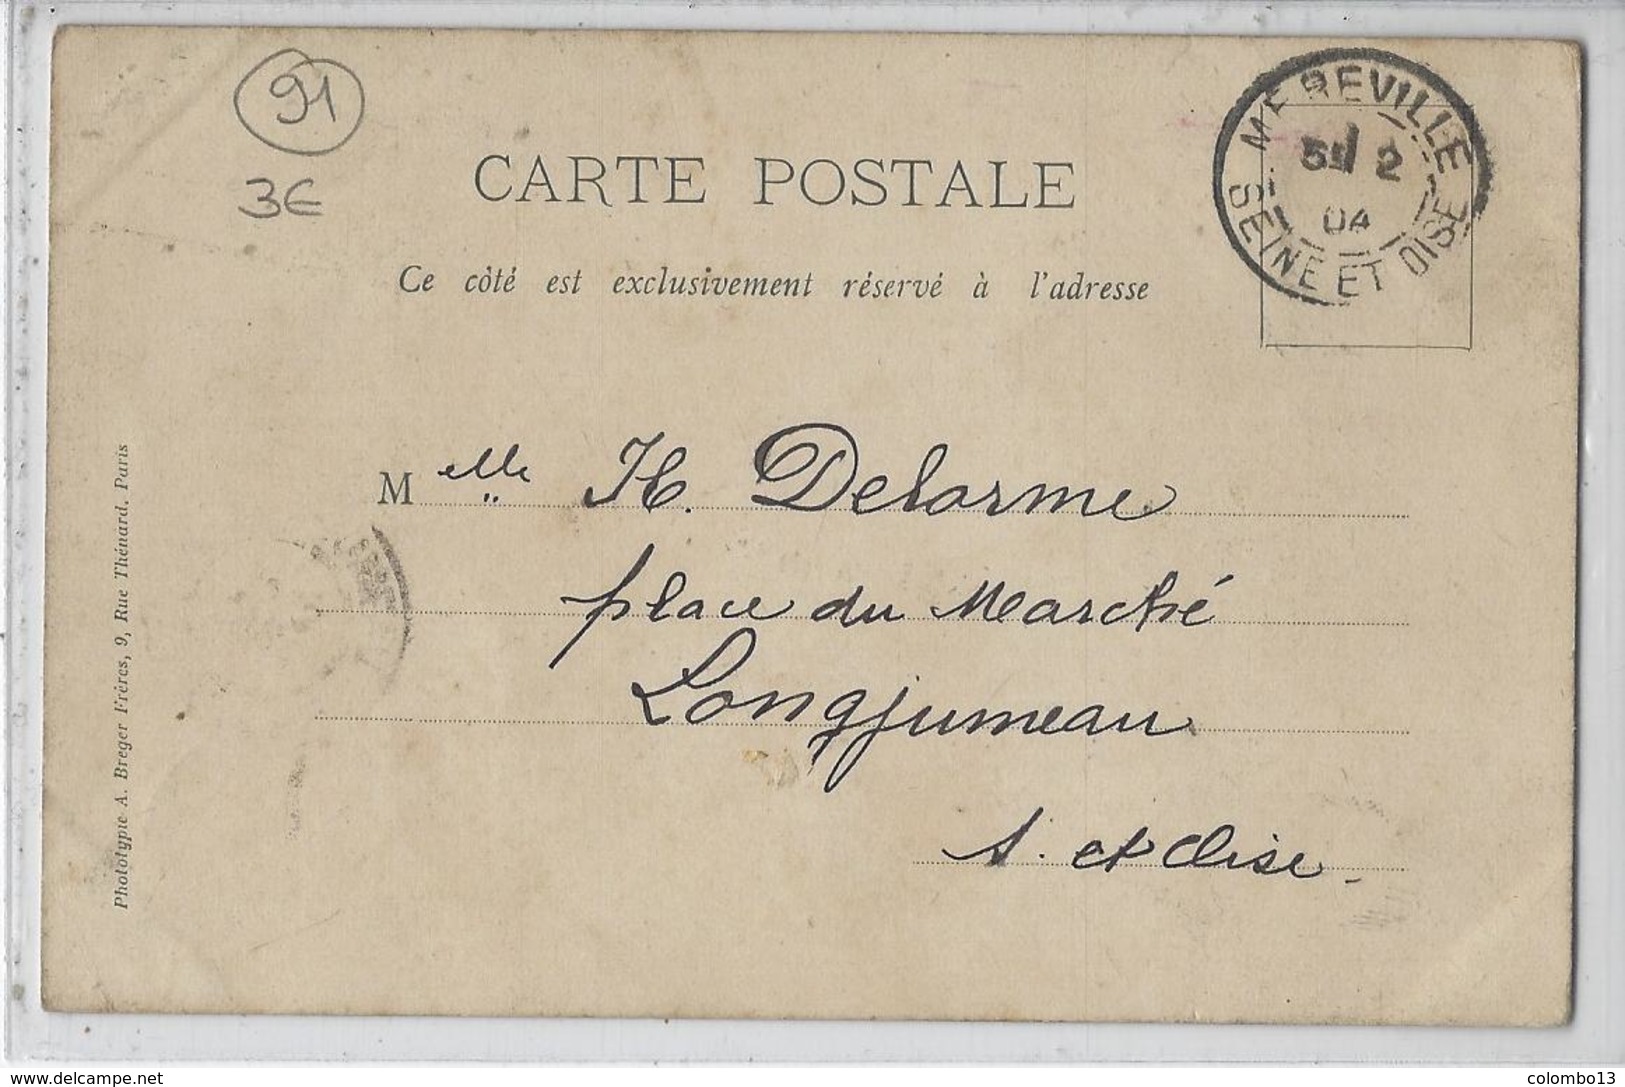 91
3€
CARTE POSTALE
Ce côté est exclusivement réservé à l'adresse
MEREVILLE
2
04
SEINE ET OISE
Melle H. Delorme
place du Marché
Longjumeau
S. et Oise.
Phototypie A. Breger Frères, 9, Rue Thénard, Paris
www.delcampe.net
colombo13